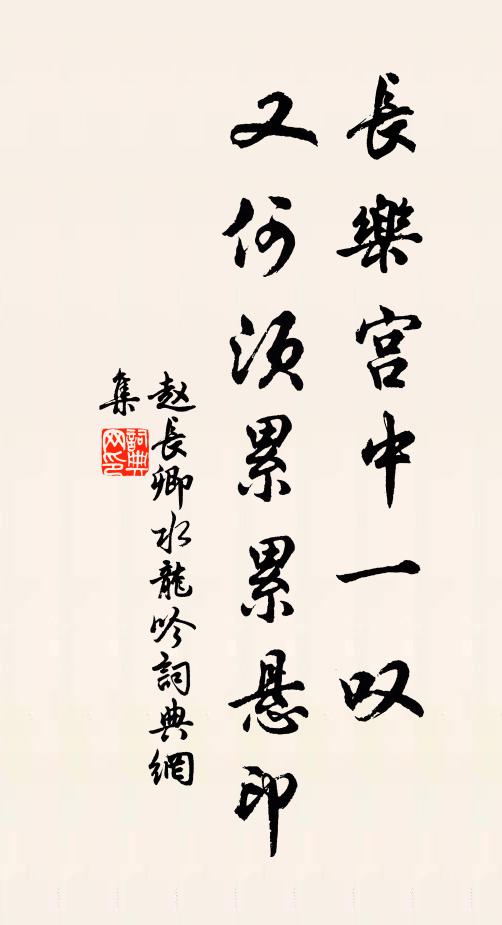 長樂宫中一叹
又何須累累悬印
赵長卿水龍吟詞典網
集
詞典网印